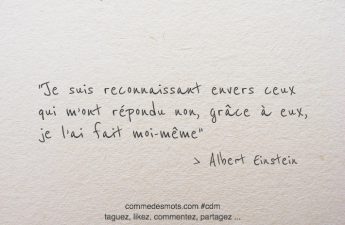 "Je suis reconnaissant envers ceux
qui m'ont répondu non, grâce à eux,
je l'ai fait moi-même"
> Albert Einstein
commedesmots.com #cdm
taguez, likez, commentez, partagez ...